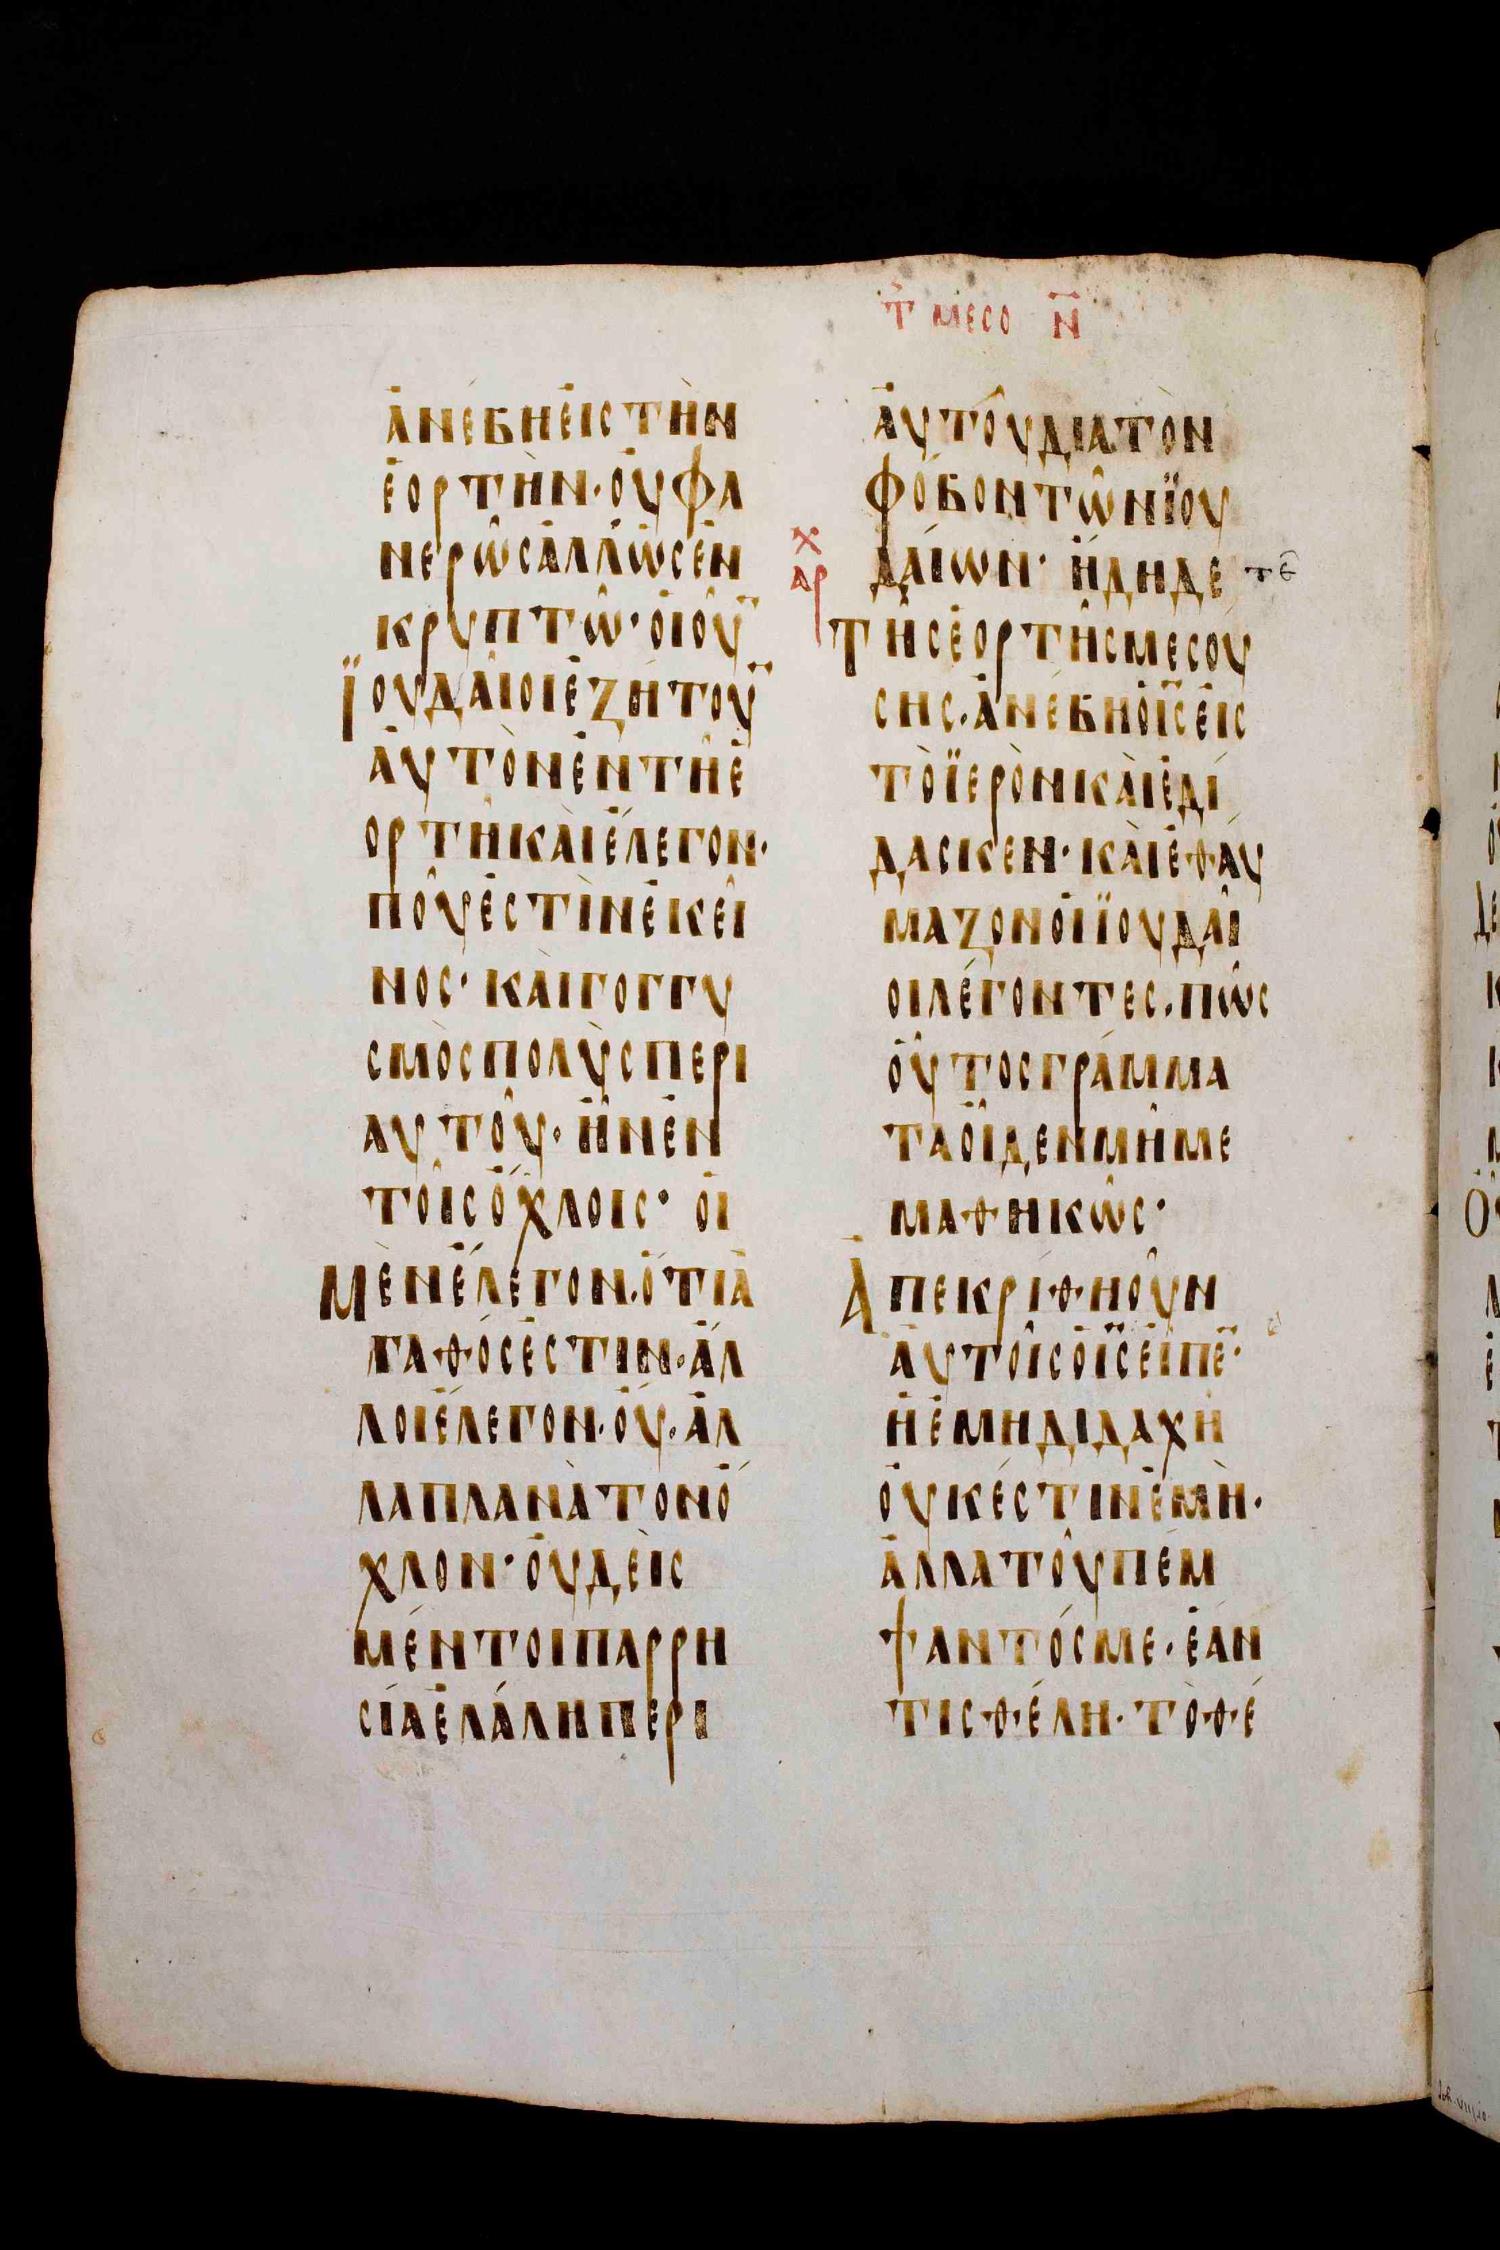 τ̅ μεσο ν̅
ἀνέβη εἰς τὴν
ἑορτὴν· οὐ φα
νερῶς ἀλλ' ὡς ἐν
κρυπτῶ· οἱ οὖ̈
ϊουδαῖοι ἐζήτοϋ
αὐτὸν ἐν τῆ ἑ
ορτῆ καὶ ἔλεγον·
ποῦ ἐστὶν ἐκεῖ
νος· καὶ γογγυ
σμὸς πολὺς περι
αυτοῦ· ἦν ἐν
τοῖς ὄχλοις· οἱ
μὲν ἔλεγον· ὅτι ἀ
γαθός ἐστιν· ἄλ
λοι ἔλεγον· οὔ· ἀλ
λα πλανὰ τον ὄ
χλον· οὐδεὶς
μέντοι παρρη
σία ἐλάλη περι
αὐτοῦ δια τὸν
φόβον τῶν ϊου
χ
αρ
δαίων· ἤδη δε τε̅
τῆς ἑορτῆς μεσου
σης· ἀνέβη ὁ ι̅ς̅ εἰς
τὸ ϊερὸν καὶ ἐδί
δασκεν· καὶ ἐθαύ
μαζον οἱ ϊουδαῖ
οι λέγοντες· πῶς
οὗτος γράμμα
τα οἶδεν μὴ με
μαθηκὼς·
ἀπεκρίθη οὖν
αὐτοῖς ὁ ι̅ς̅ εἶπε̈·
ἡ ἐμη διδαχὴ
οὐκ ἐστιν ἐμὴ·
ἀλλα τοῦ πέμ
ψαντός με· ἐάν
τις θέλη· τὸ θέ